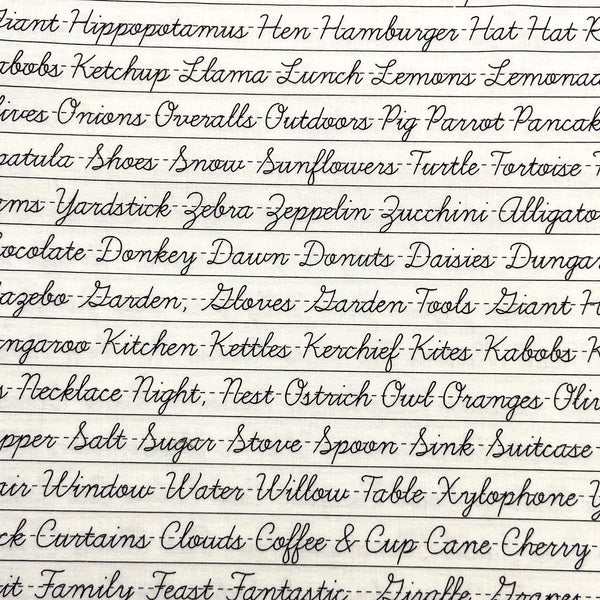 Giant-Hippopotamus-Hen-Hamburger-Hat Hat-R
abobs-Ketchup-Llama-Lunch-Lemons-Lemonad
lives-Onions-Overalls-Outdoors-Pig-Parrot-Pancak
patula-Shoes-Snow-Sunflowers-Turtle-Tortoise-
rms-Yardstick-Zebra-Zeppelin-Zucchini-Alligato
hocolate-Donkey-Dawn-Donuts-Daisies-Dungar
Gazebo-Garden,-Gloves-Garden-Tools-Giant-H
angaroo-Kitchen-Kettles-Kerchief-Kites-Kabobs-K
s-Necklace-Night,-Nest-Ostrich-Owl-Oranges-Oliv
epper-Salt-Sugar-Stove-Spoon-Sink-Suitcase-
air-Window-Water-Willow-Table-Xylophone-Y
ck-Curtains-Clouds-Coffee & Cup-Cane-Cherry-
it-Family-Feast-Fantastic---Giraffe--Grapes--